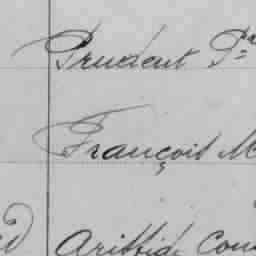 Prudent Pre
François M
Aristide Cou